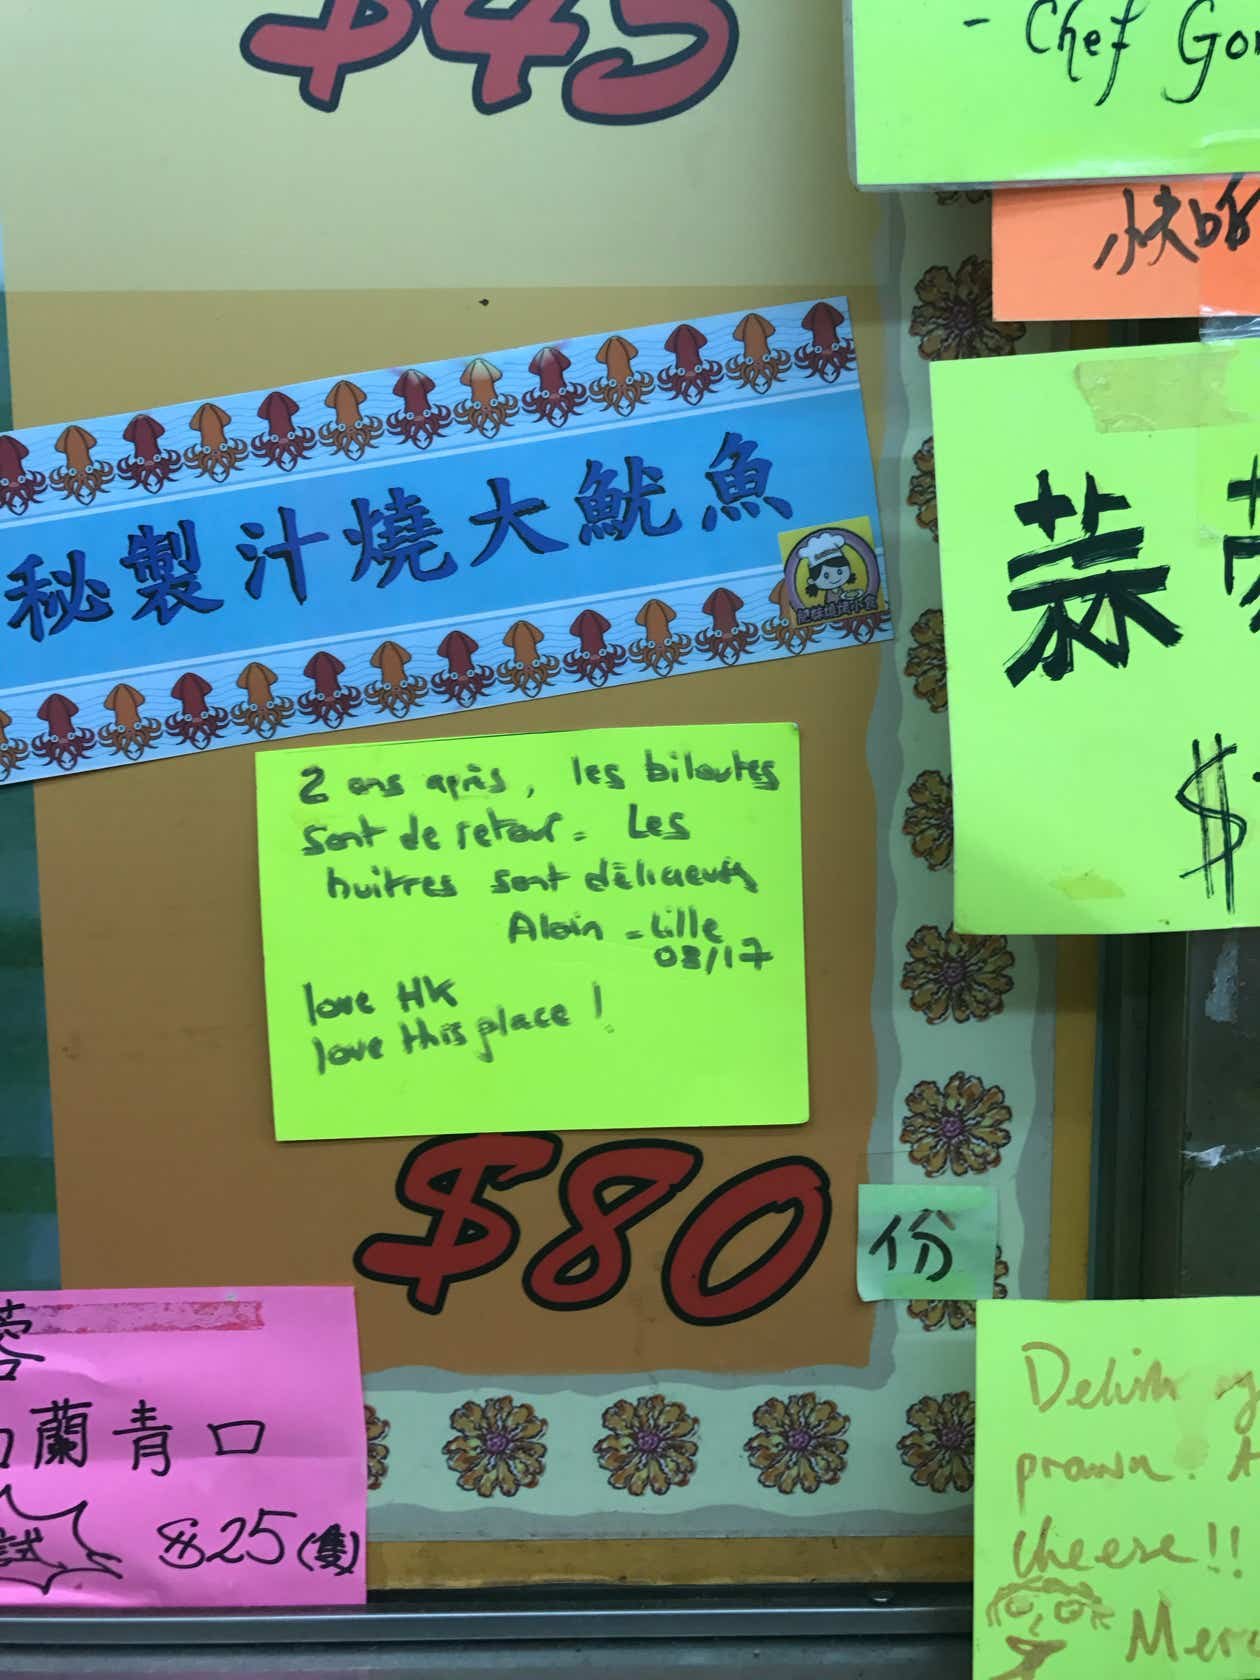 $45
- Chef Gor
秘製汁燒大魷魚
2 ans après, les biloutes
sont de retour. Les
huitres sont délicieuses
Alain - Lille
03/17
love HK
love this place !
蒜
$
$80
份
蓉
蘭青口
試
$25(隻)
prawn. A
cheese!!
Mer